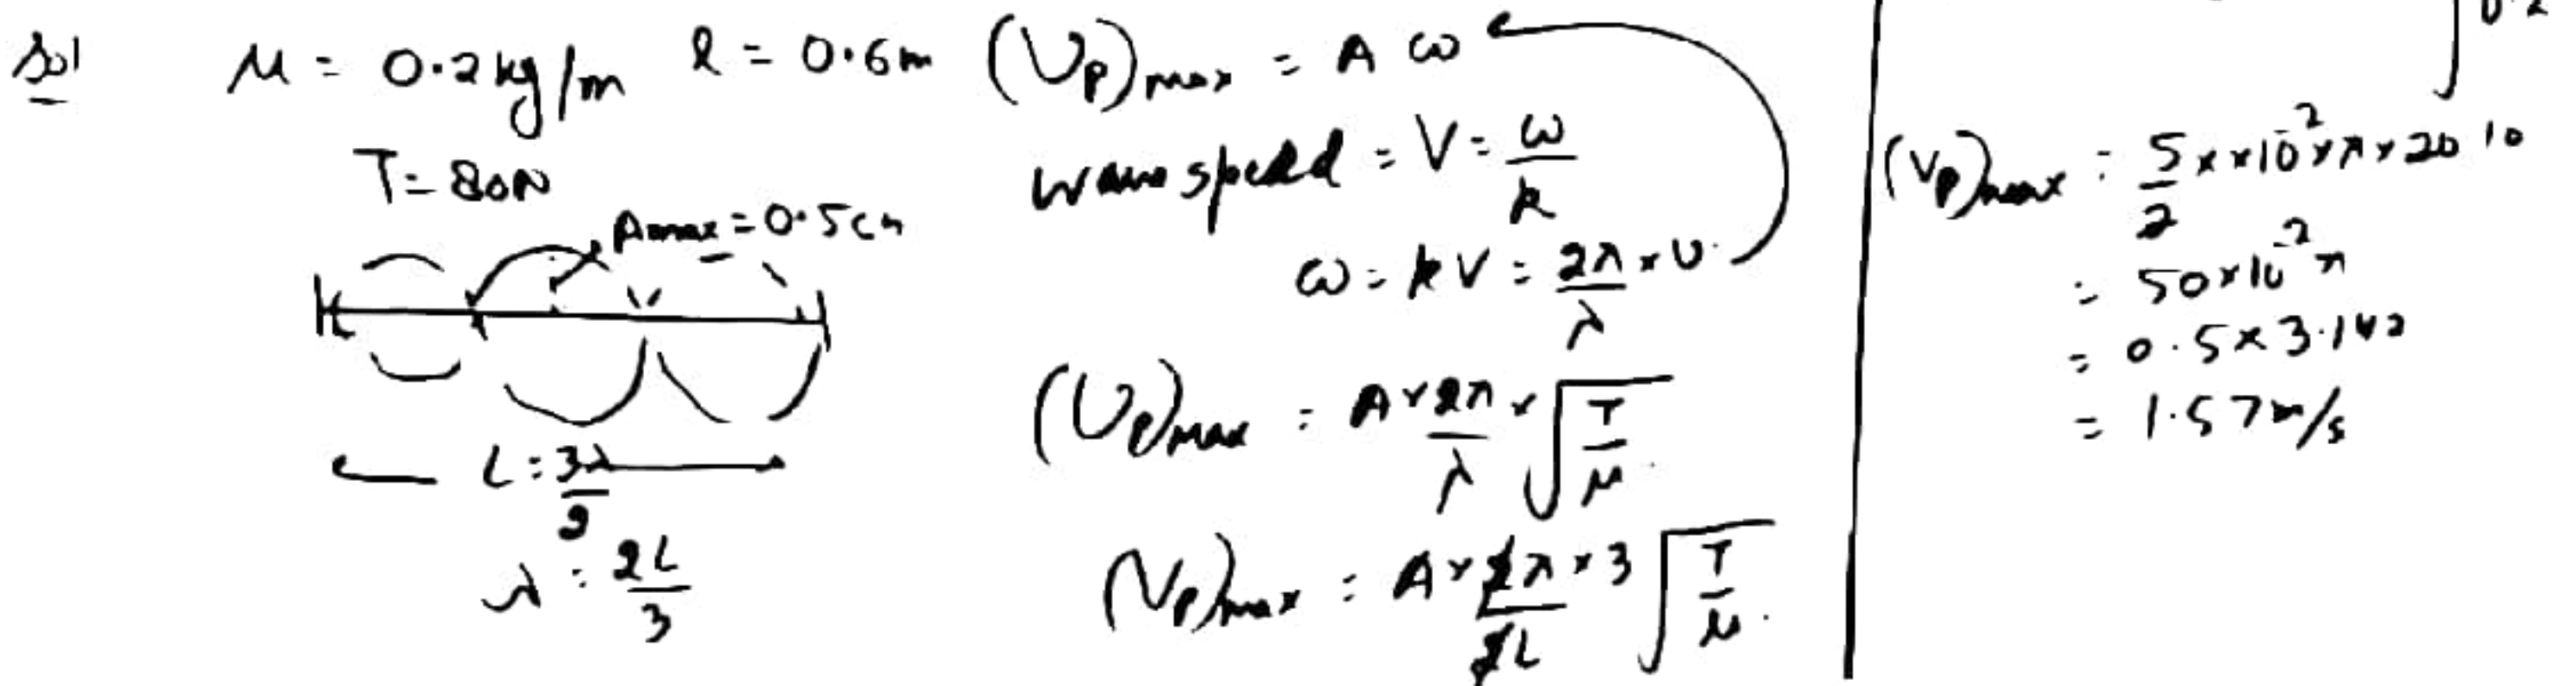 Sol μ = 0.2 kg/m l = 0.6m
T = 80N
Amax = 0.5cm
L = 3λ/2
λ = 2L/3
(Vp)max = A ω
wave speed = V = ω/k
ω = kV = 2π/λ × V
(Vp)max = A × 2π/λ × √(T/μ)
(Vp)max = A × 2π × 3/2L √(T/μ)
0.2
(Vp)max = 5/2 × × 10⁻² × π × 20 10
= 50 × 10⁻² π
= 0.5 × 3.142
= 1.57 m/s